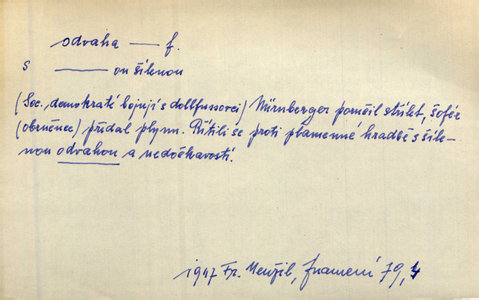 odvaha — f.
s ——— ou šílenou
(Soc. demokraté bojují s dollfusovci) Nürnberger poručil střílet, šofér
(obrněnec) přidal plynu. Řítili se proti plamenné hradbě s šíle-
nou odvahou a nedočkavostí.
1947 Fr. Neužil, Znamení 79, 4